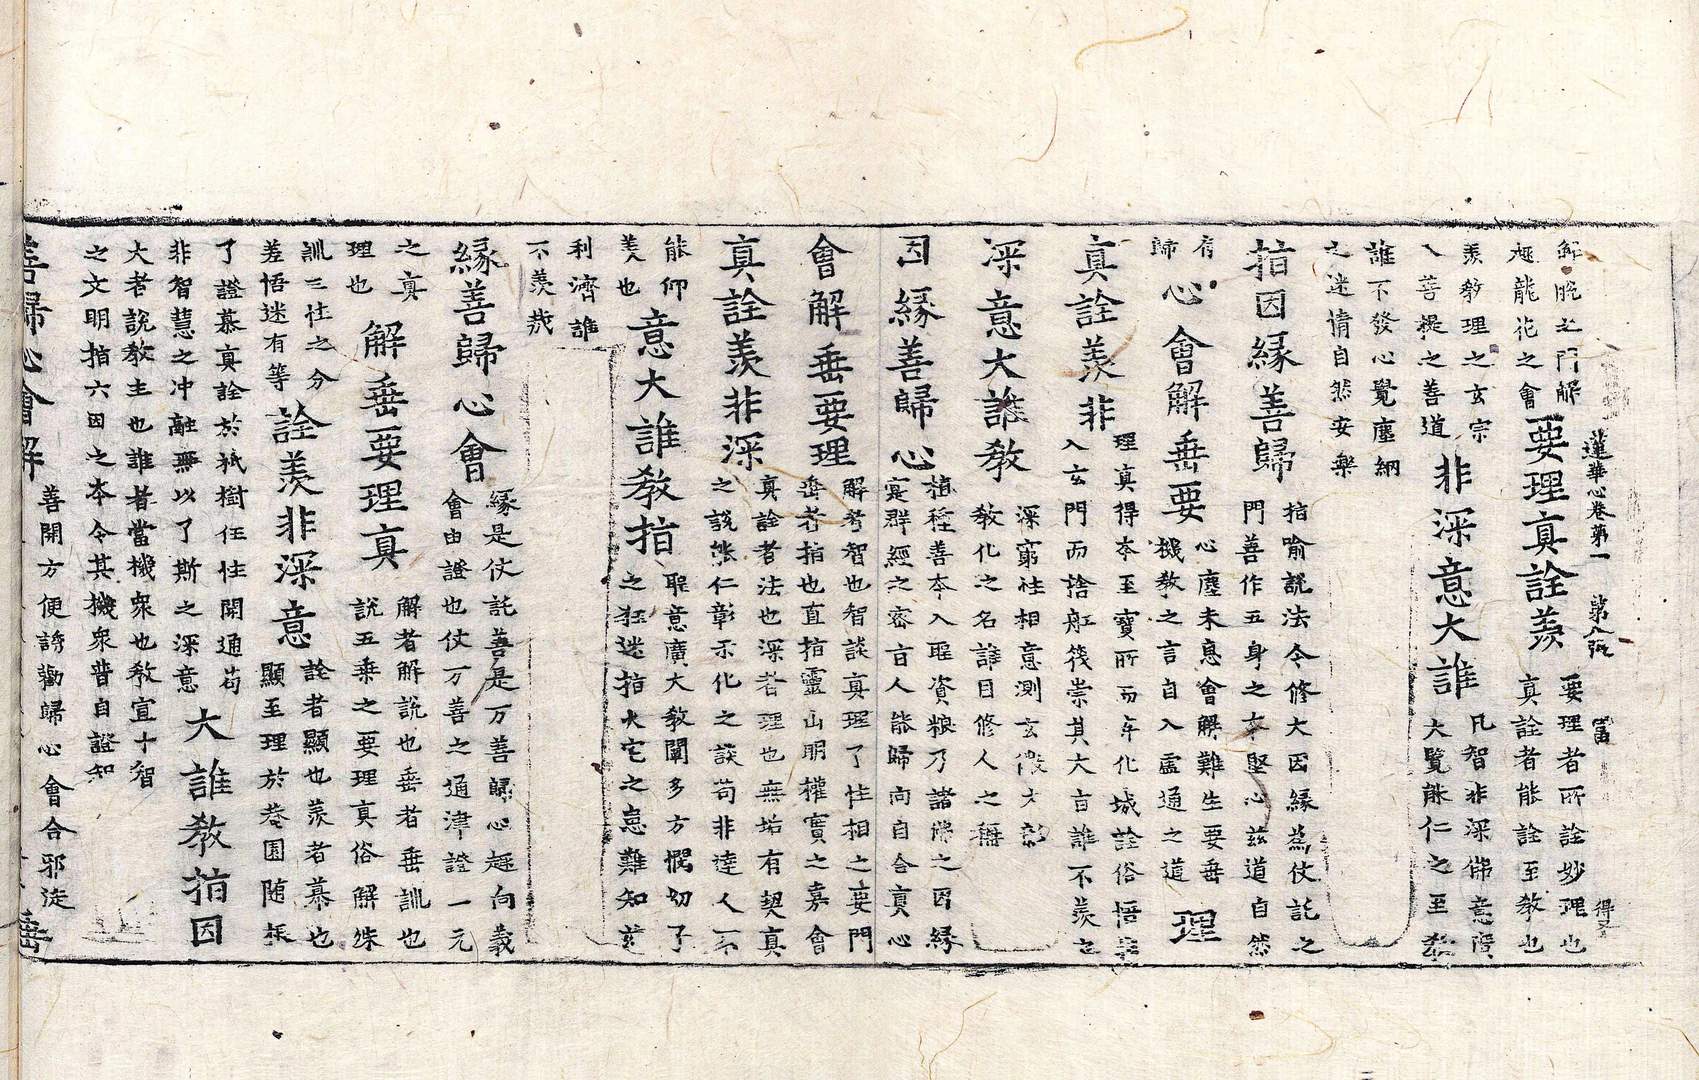 解脫之門解
極龍花之會
要理真詮羨
要理者所詮妙理也
真詮者能詮至教也
蓮華心卷第一 第八張 富
羨教理之玄宗
入菩提之善道
非深意大誰
凡智非深佛意廣
大覽能仁之至教
誰不發心覺塵納
之迷情自然安樂
指因緣善歸
指喻說法令修大因緣為仗託之
門善作五身之本堅心茲道自然
有
歸
心會解垂要
心塵未息會解難生要垂
機教之言自入虛通之道
理
真詮羨非
理真得本至寶所而年化城詮俗悟
入玄門而捨舡筏崇其大旨誰不羨之
深意大誰教
深窮性相意測玄微大彰
教化之名誰目修人之稱
因緣善歸心
植種善本入聖資粮乃諸佛之因緣
寔群經之密旨人能歸向自合真心
會解垂要理
解者智也智談真理了性相之要門
垂者指也直指靈山明權實之嘉會
真詮羨非深
真詮者法也深者理也無垢有契真
之說然仁彰示化之談苟非達人不
能仰
羨也
意大誰教指
聖意廣大教闡多方愕切了
之狂迷指火宅之忌難知苦
利濟誰
不羨哉
緣善歸心會
緣是仗託善是万善歸心趣向義
會由證也仗万善之通津證一元
之真
理也
解垂要理真
解者解說也垂者垂訓也
說五乗之要理真俗解殊
訓三性之分
差悟迷有等
詮羨非深意
詮者顯也羨者慕也
顯至理於菴園随
了證慕真詮於祇樹任性開通苟
非智慧之冲融無以了斯之深意
大誰教指因
大者說教主也誰者當機衆也教宣十智
之文明指六因之本令其機衆普自證知
善歸心會解
善開方便誘勸歸心會合邪徒
垂